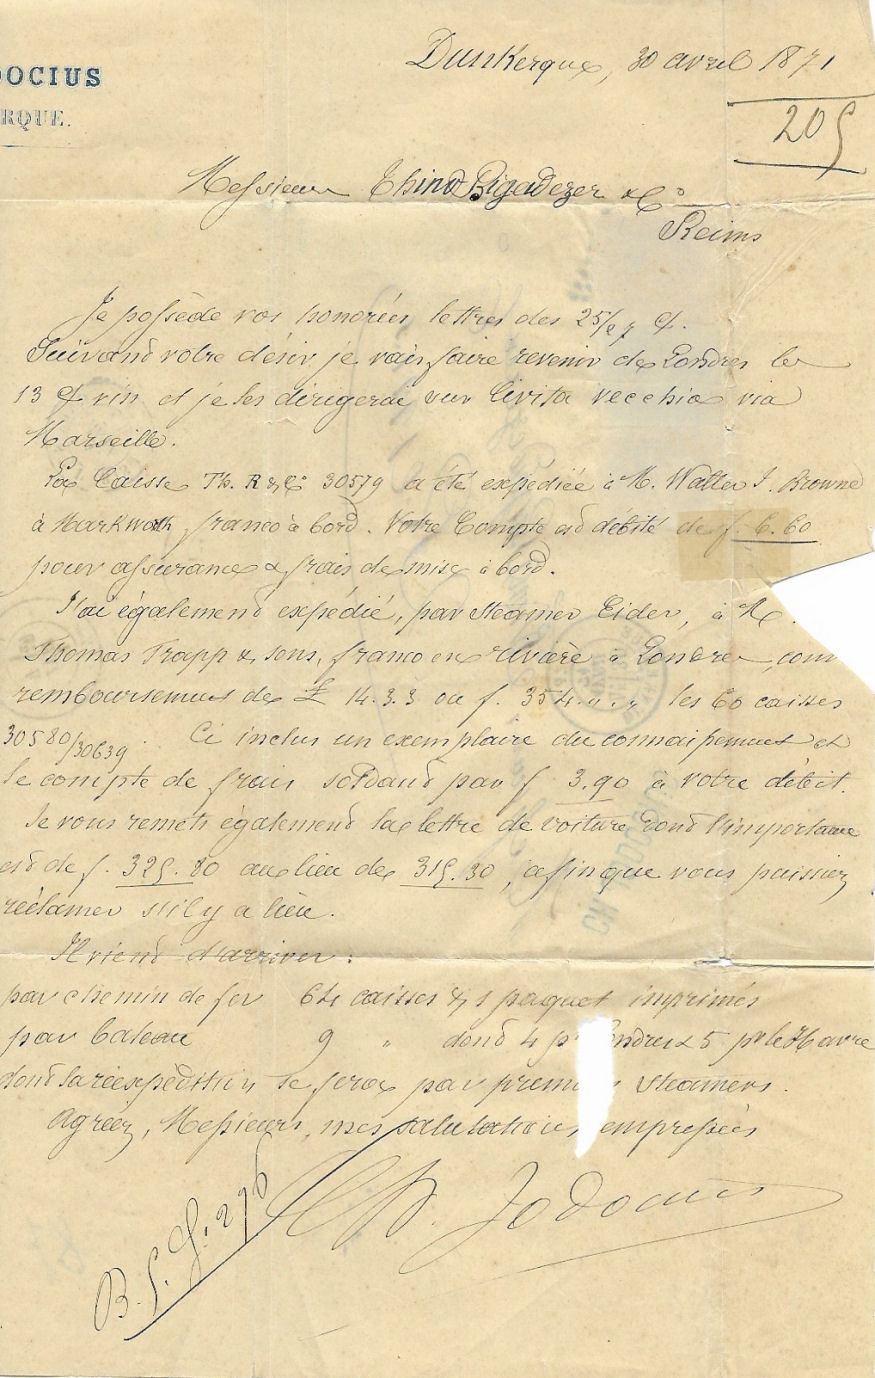 DOCIUS
RQUE.
Dunkerque, 30 avril 1871
205
Messieurs Bigadezer & Co
Reims
Je possède vos honorées lettres des 25/27 ct.
Suivant votre désir, je vais faire revenir de Londres les
13 vin et je les dirigerai sur Civita vecchia via
Marseille.
La Caisse Th. R & Co 30579 a été expédiée à M. Walter J. Browne
à Harkworth franco à bord. Votre Compte est débité de f. 6.60
pour assurance & frais de mise à bord.
J'ai également expédié, par Steamer Eider, à M.
Thomas Trapp & sons, franco en rivière à Londres
remboursement de £ 14.3.3 ou f. 354. „ „ les 60 caisses
30580/30639. Ci inclus un exemplaire du connaissement et
le compte de frais soldant par f 3.90 à votre débit.
Je vous remets également la lettre de voiture dont l'importance
est de f. 325.80 au lieu de 315.30, afin que vous puissiez
réclamer s'il y a lieu.
Il vient d'arriver :
par chemin de fer 64 caisses & 1 paquet imprimés
par bateau 9 „ dont 4 pr ondres & 5 pr le Havre
dont la réexpédition se fera par premi s steamers.
Agréez, Messieurs, mes salutations empressées
Ch. Jodocius
B. f. 276
CH. JODOCIUS